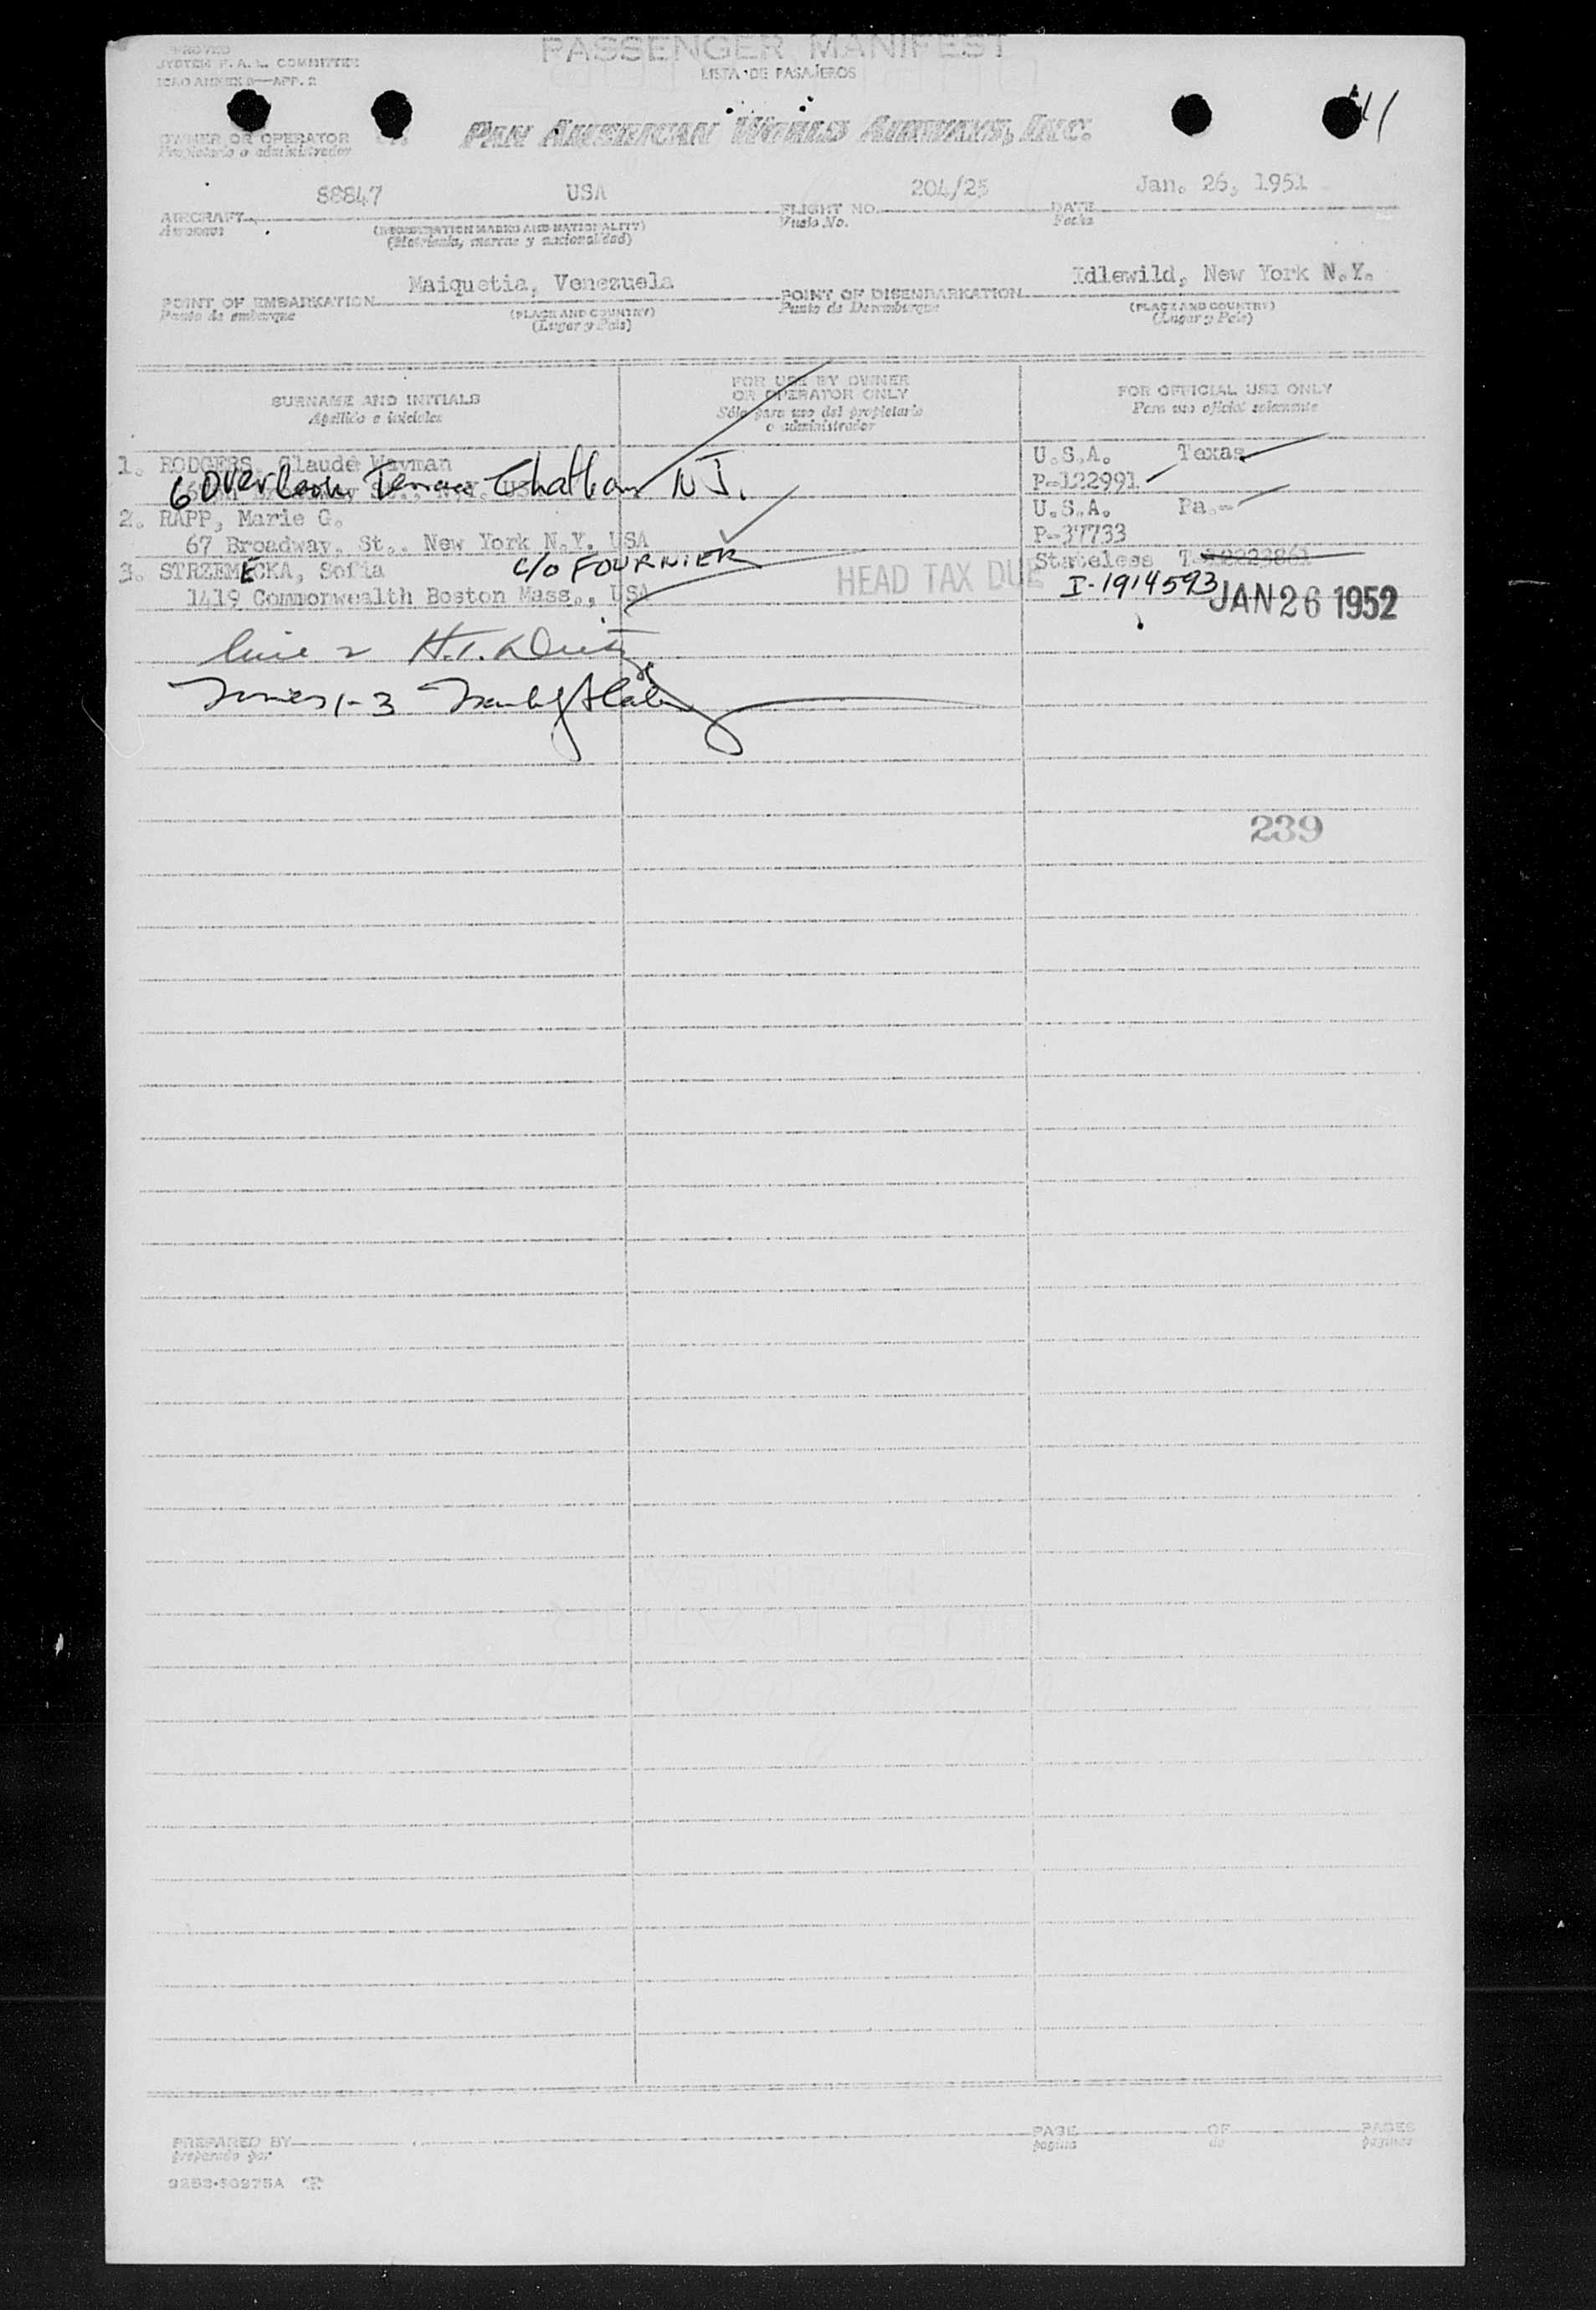 PASSENGER MANIFEST
LISTA DE PASAJEROS
SYSTEM F. A. L. COMMITTEE
ICAO ANNEX 9—APP. 2
11
OWNER OR OPERATOR
Propietario o administrador
PAN AMERICAN WORLD AIRWAYS, INC.
AIRCRAFT 88847 USA FLIGHT NO. 204/25 DATE Jan. 26, 1951
Aeronave (REGISTRATION MARKS AND NATIONALITY) Vuelo No. Fecha
(Matricula, marcas y nacionalidad)
POINT OF EMBARKATION Maiquetia, Venezuela POINT OF DISEMBARKATION Idlewild, New York N.Y.
Punto de embarque (PLACE AND COUNTRY) Punto de Desembarque (PLACE AND COUNTRY)
(Lugar y Pais) (Lugar y Pais)
SURNAME AND INITIALS FOR USE BY OWNER OR OPERATOR ONLY FOR OFFICIAL USE ONLY
Apellido e iniciales Sólo para uso del propietario o administrador Para uso oficial solamente
1. RODGERS, Claude Wayman U.S.A. Texas
6 Overlook Terrace Chatham N J. P-122991
2. RAPP, Marie G. U.S.A. Pa.-
67 Broadway, St., New York N.Y. USA P-37733
3. STRZEMECKA, Sofia c/o FOURNIER Stateless
1419 Commonwealth Boston Mass., USA HEAD TAX DUE I-1914593 JAN 26 1952
line 2 H.T.
1-3
239
PREPARED BY PAGE OF PAGES
preparado por pagina de paginas